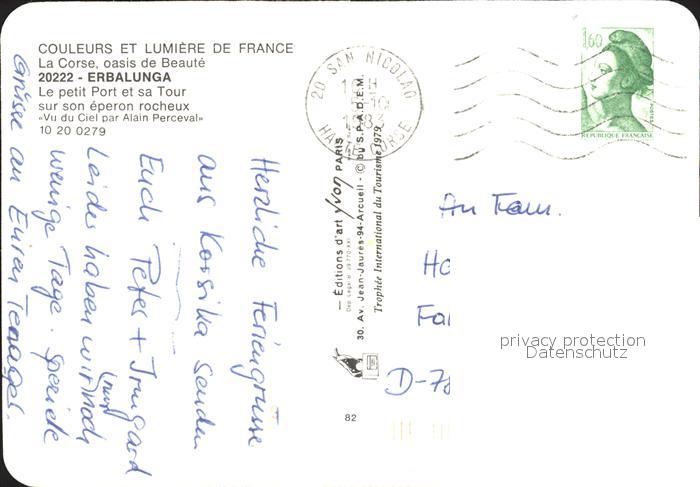 COULEURS ET LUMIÈRE DE FRANCE
La Corse, oasis de Beauté
20222 - ERBALUNGA
Le petit Port et sa Tour
sur son éperon rocheux
«Vu du Ciel par Alain Perceval»
10 20 0279
Herzliche Feriengrüsse
aus Korsika senden
Euch Peter + Irmgard
Leider haben wir noch
(nur)
wenige Tage. Spezielle
Grüsse an Euren Teenager.
— Éditions d'art yvon PARIS
30. Av. Jean-Jaurès-94-Arcueil - © by S.P.A.D.E.M.
Trophée International du Tourisme 1979
82
20 SAN NICOLAO
10 H
-10
1983
HAUTE CORSE
1,60
REPUBLIQUE FRANÇAISE
An Fam.
Ho
Fa
D-78
privacy protection
Datenschutz